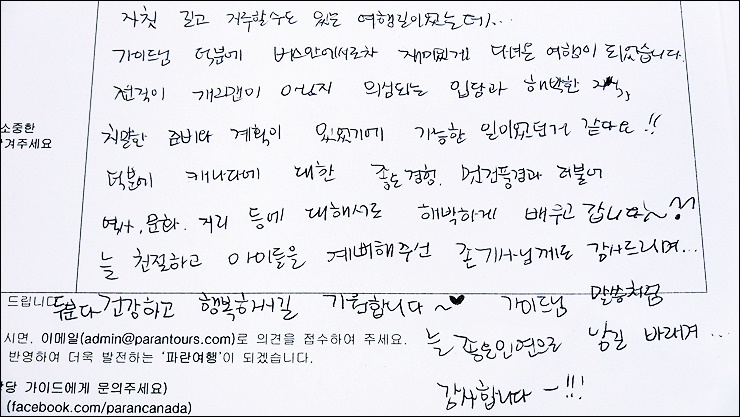 자칫 길고 지루할수도 있는 여행길이었는데...
가이드님 덕분에 버스안에서조차 재미있게 다녀온 여행이 되었습니다.
전직이 개그맨이 아닌지 의심되는 입담과 해박한 지식,
치밀한 준비와 계획이 있었기에 가능한 일이었던거 같아요!!
소중한
겨주세요
덕분에 캐나다에 대한 좋은경험. 멋진풍경과 더불어
역사, 문화. 거리 등에 대해서도 해박하게 배우고 갑니다~^^
늘 친절하고 아이들을 예뻐해주신 존기사님께도 감사드리며...
드립니다
두분다 건강하고 행복하시길 기원합니다~♥ 가이드님 말씀처럼
시면, 이메일(admin@parantours.com)로 의견을 접수하여 주세요.
늘 좋은인연으로 남길 바래며...
반영하여 더욱 발전하는 '파란여행'이 되겠습니다.
당 가이드에게 문의주세요)
감사합니다-!!!
(facebook.com/parancanada)